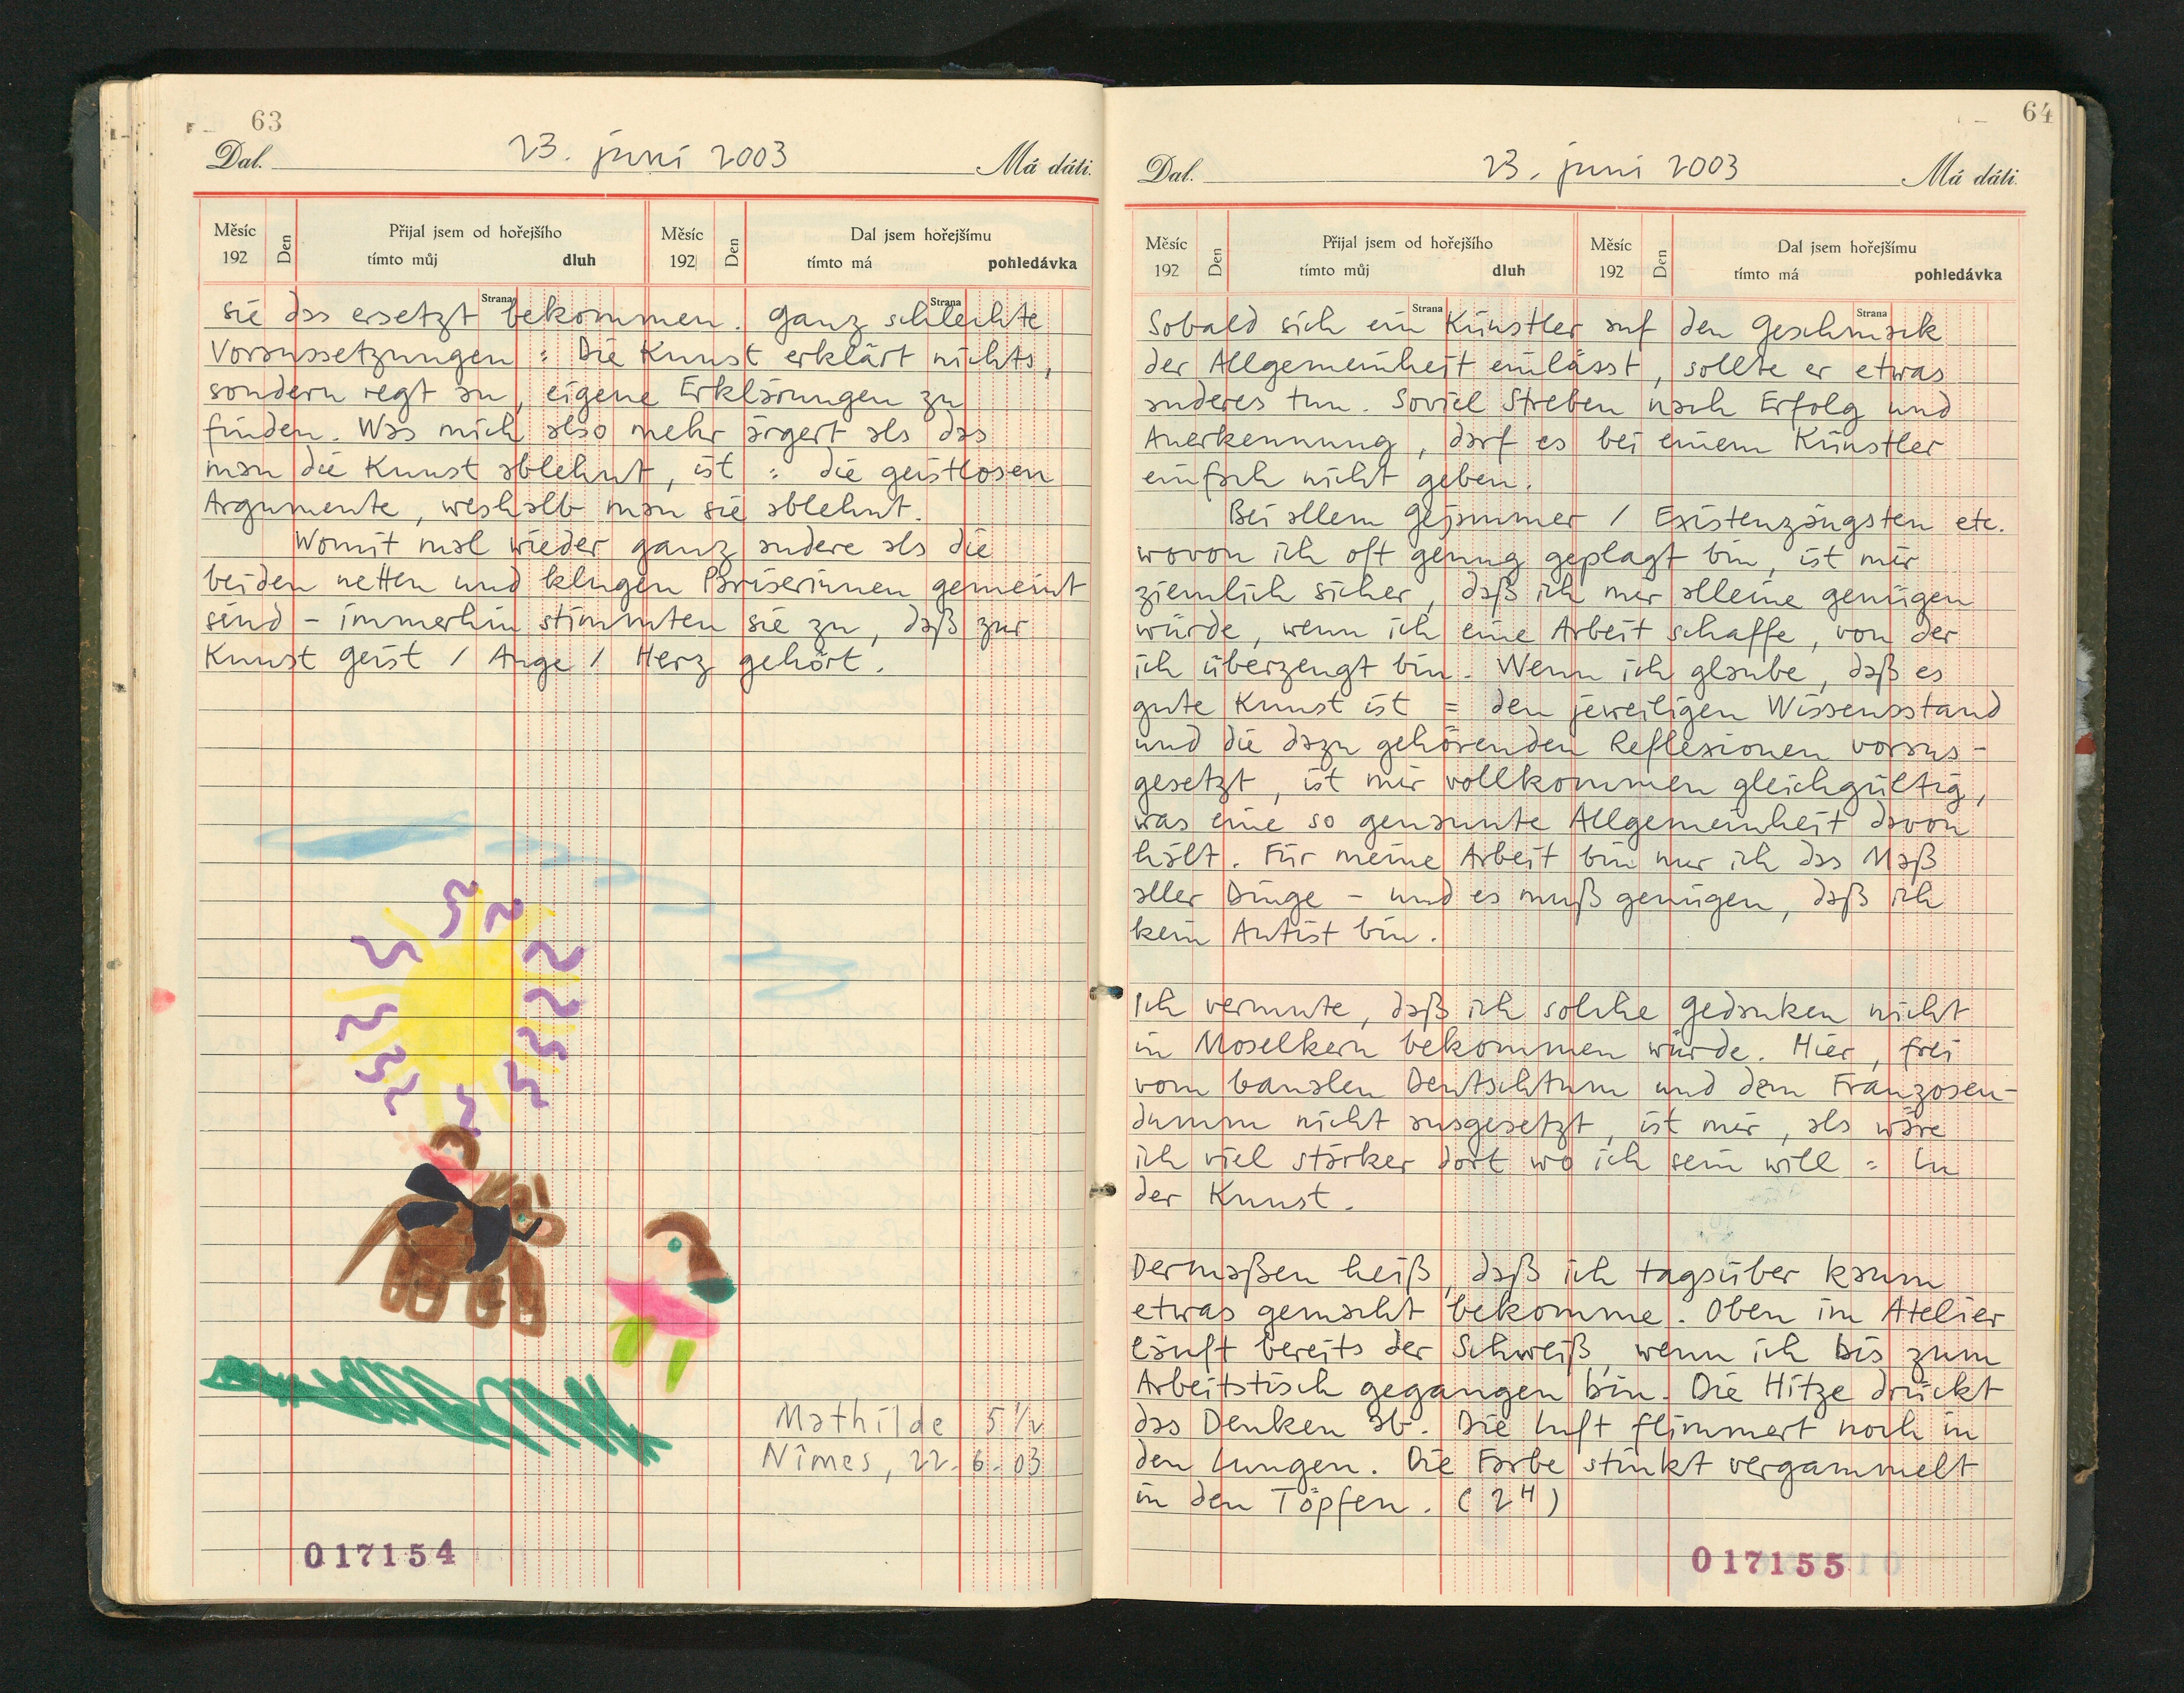 63
Dal. 23. juni 2003 Má dáti.
Měsíc 192 Den Přijal jsem od hořejšího tímto můj dluh Měsíc 192 Den Dal jsem hořejšímu tímto má pohledávka
Strana Strana
sie das ersetzt bekommen. Ganz schlechte
Voraussetzungen : Die Kunst erklärt nichts,
sondern regt an, eigene Erklärungen zu
finden. Was mich also mehr ärgert als das
man die Kunst ablehnt, ist : die geistlosen
Argumente, weshalb man sie ablehnt.
Womit mal wieder ganz andere als die
beiden netten und klugen Pariserinnen gemeint
sind – immerhin stimmten sie zu, daß zur
Kunst Geist / Auge / Herz gehört.
Mathilde 5 ½
Nîmes, 22.6.03
017154
64
Dal. 23. juni 2003 Má dáti.
Měsíc 192 Den Přijal jsem od hořejšího tímto můj dluh Měsíc 192 Den Dal jsem hořejšímu tímto má pohledávka
Strana Strana
Sobald sich ein Künstler auf den Geschmack
der Allgemeinheit einlässt, sollte er etwas
anderes tun. Soviel Streben nach Erfolg und
Anerkennung, darf es bei einem Künstler
einfach nicht geben.
Bei allem Gejammer / Existenzängsten etc.
wovon ich oft genug geplagt bin, ist mir
ziemlich sicher, daß ich mir alleine genügen
würde, wenn ich eine Arbeit schaffe, von der
ich überzeugt bin. Wenn ich glaube, daß es
gute Kunst ist = den jeweiligen Wissensstand
und die dazu gehörenden Reflexionen voraus-
gesetzt, ist mir vollkommen gleichgültig,
was eine so genannte Allgemeinheit davon
hält. Für meine Arbeit bin nur ich das Maß
aller Dinge – und es muß genügen, daß ich
kein Autist bin.
Ich vermute, daß ich solche Gedanken nicht
in Moselkern bekommen würde. Hier, frei
vom banalen Deutschtum und dem Franzosen-
dumm nicht ausgesetzt, ist mir, als wäre
ich viel stärker dort wo ich sein will : In
der Kunst.
Dermaßen heiß, daß ich tagsüber kaum
etwas gemacht bekomme. Oben im Atelier
läuft bereits der Schweiß, wenn ich bis zum
Arbeitstisch gegangen bin. Die Hitze drückt
das Denken ab. Die Luft flimmert noch in
den Lungen. Die Farbe stinkt vergammelt
in den Töpfen. (2H)
017155